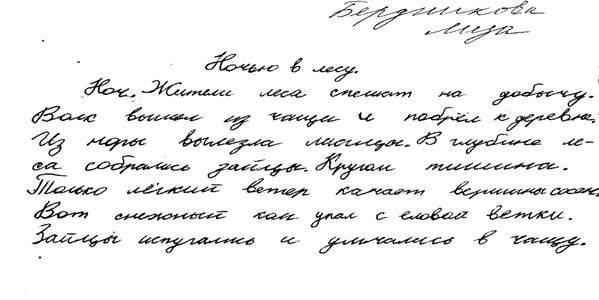 Бердникова
Лиза
Ночью в лесу.
Ноч. Жители леса спешат на добычу.
Волк вышел из чащи и побрёл к деревне.
Из норы вылезла лисицы. В глубине ле-
са собрались зайцы. Кругом тишина.
Только лёгкий ветер качает вершины сосен.
Вот снежный ком упал с еловой ветки.
Зайцы испугались и умчались в чащу.